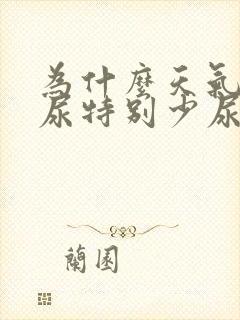 為什麼天氣
尿特别少尿
蘭園